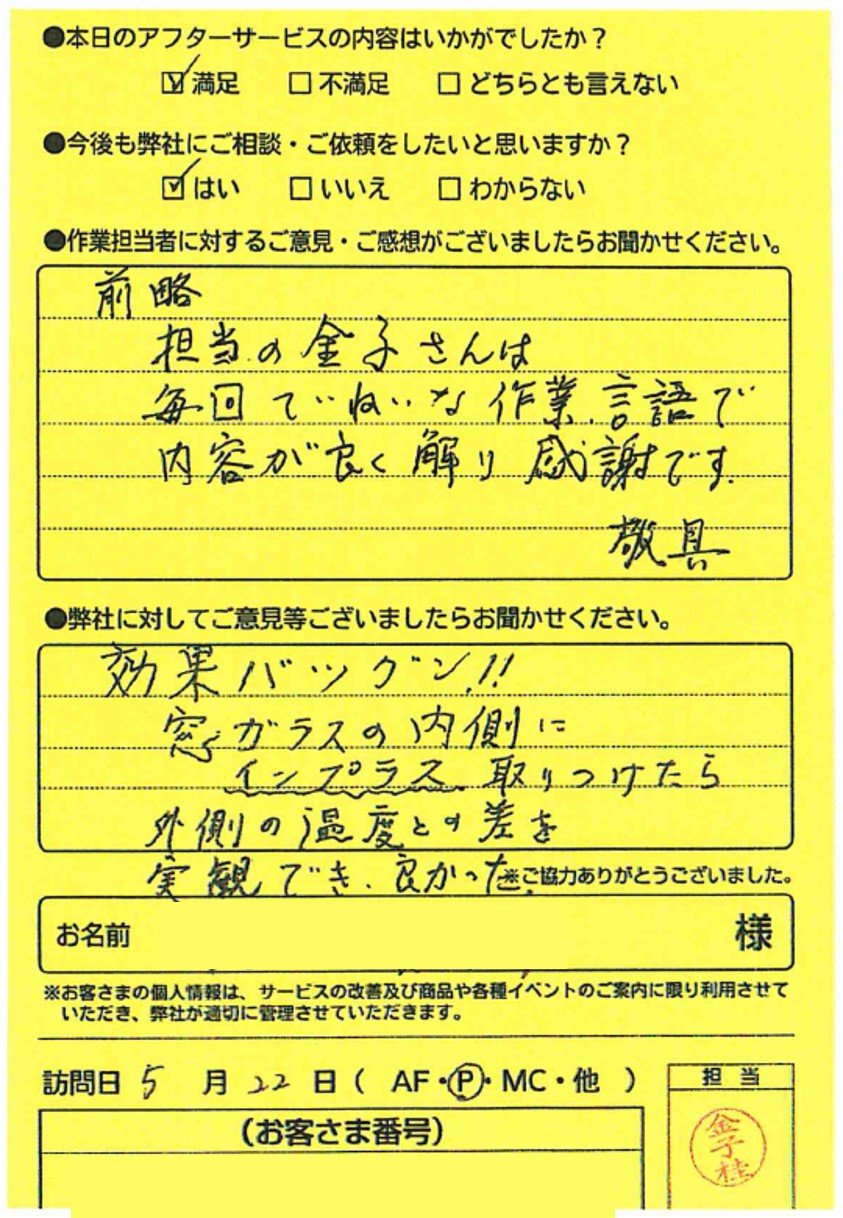 ●本日のアフターサービスの内容はいかがでしたか？
☑満足 □不満足 □どちらとも言えない
●今後も弊社にご相談・ご依頼をしたいと思いますか？
☑はい □いいえ □わからない
●作業担当者に対するご意見・ご感想がございましたらお聞かせください。
前略
担当の金子さんは
毎回ていねいな作業、言語で
内容が良く解り感謝です。
敬具
●弊社に対してご意見等ございましたらお聞かせください。
効果バツグン!!
窓ガラスの内側に
インプラス、取りつけたら
外側の温度との差を
実観でき、良かった。
※ご協力ありがとうございました。
お名前 様
※お客さまの個人情報は、サービスの改善及び商品や各種イベントのご案内に限り利用させて
いただき、弊社が適切に管理させていただきます。
訪問日 5 月 22 日 ( AF・Ⓟ・MC・他 )
担当
(お客さま番号)
金子桂